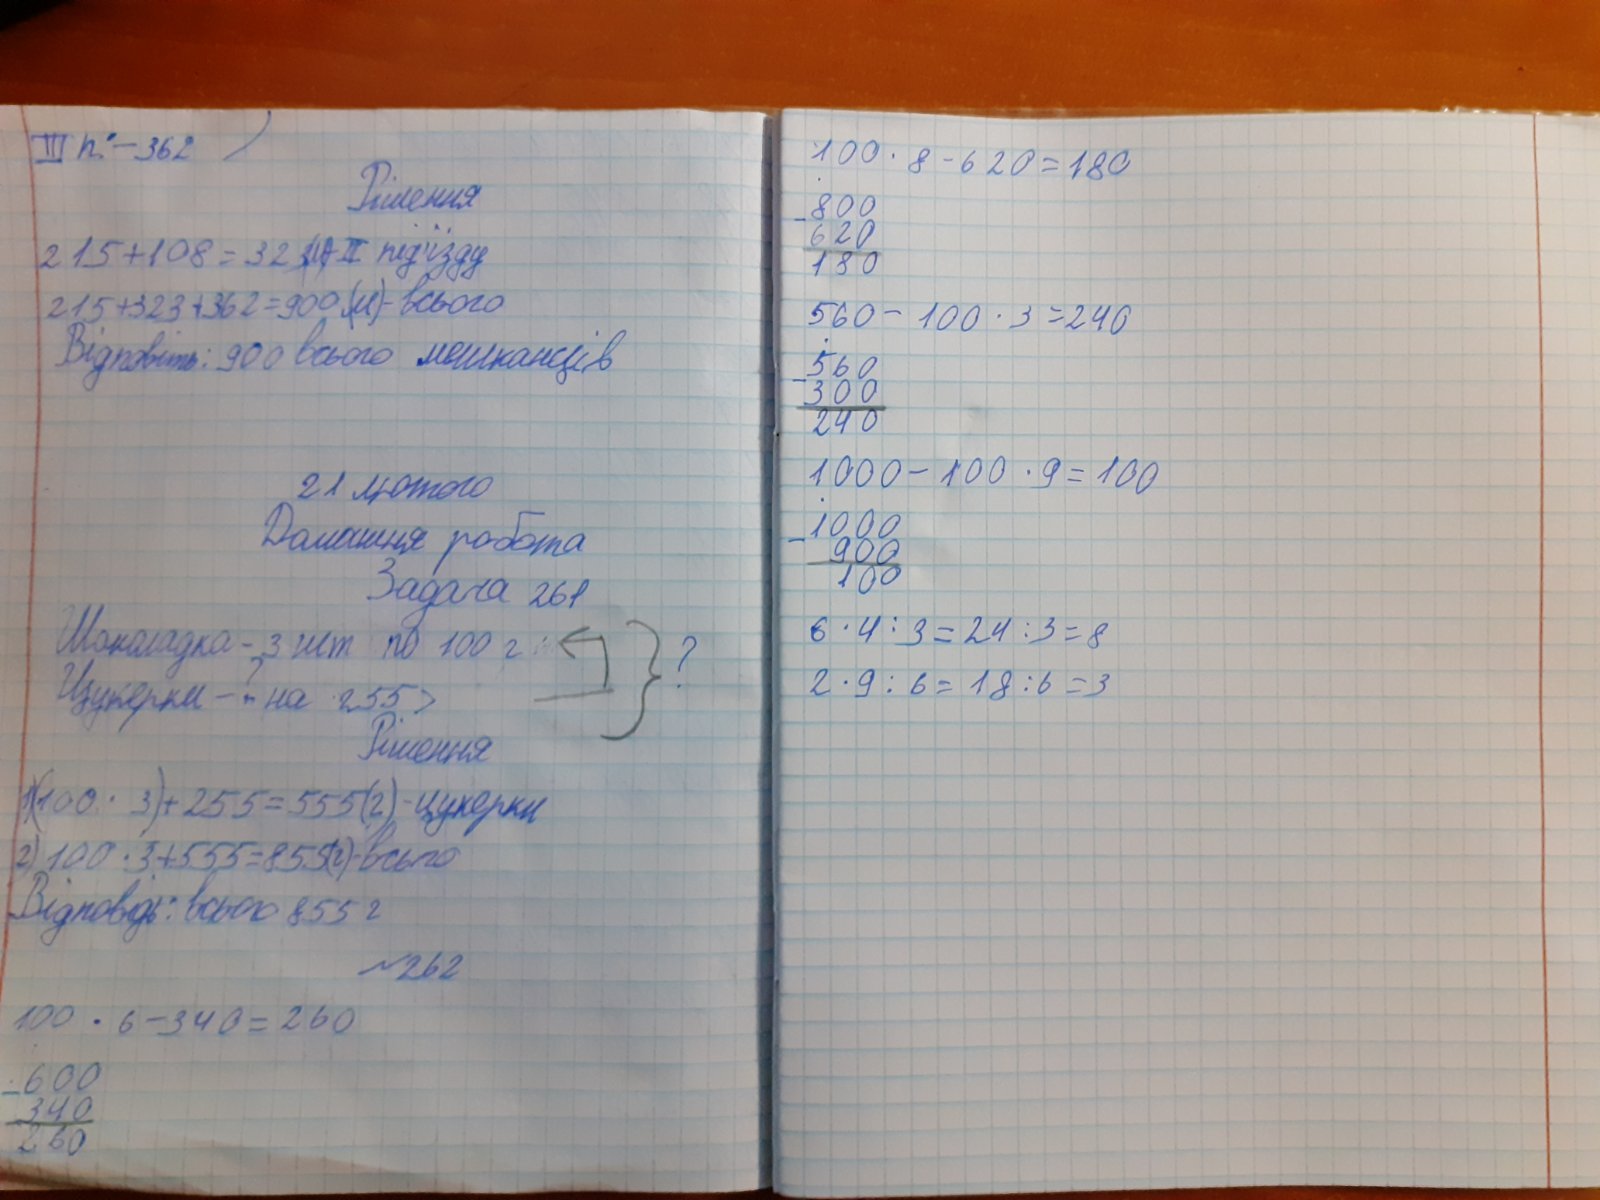 III п. – 362
Рішення
215+108=323(м)-II під'їзду
215+323+362=900(м)-всього
Відповіть: 900 всього мешканців
21 лютого
Домашня робота
Задача 261
Шоколадка - 3 шт по 100 г
?
Цукерки - ? на 255 >
Рішення
1)(100 · 3)+255=555(г)-цукерки
2) 100 · 3+555=855(г)-всього
Відповідь: всього 855 г
№262
100 · 6-340=260
-600
340
260
100 · 8-620=180
-800
620
180
560-100 · 3=240
-560
300
240
1000-100 · 9=100
-1000
900
100
6 · 4 : 3=24:3=8
2 · 9 : 6=18:6=3